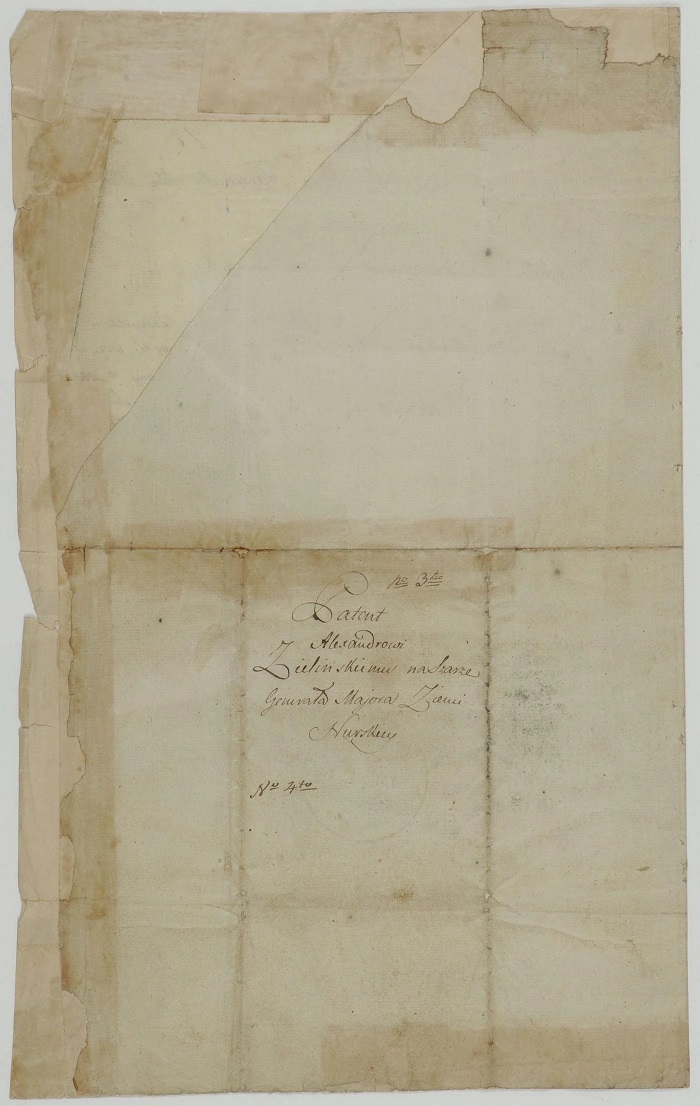 No 3tio
Patent
Alexandrowi
Zielińskiemu na Szarże
Generała Majora Ziemi
Nurskiey
No 4to